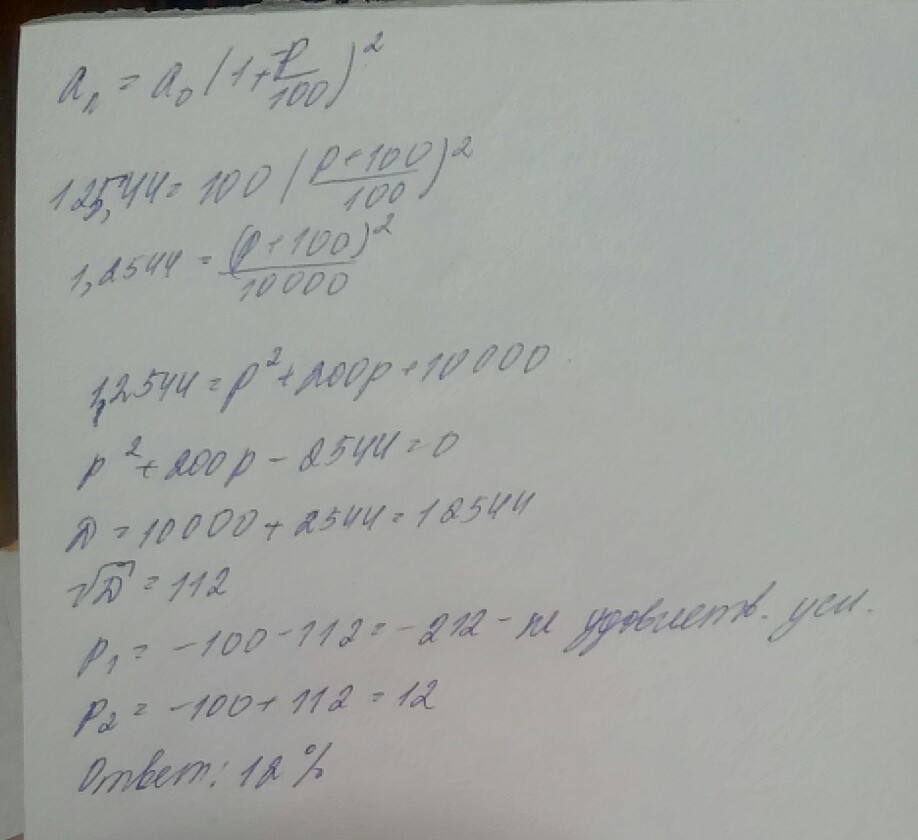 aₙ = a₀(1+P/100)²
125,44 = 100(P+100/100)²
1,2544 = (P+100)²/10000
1,2544 = p²+200p+10000
p²+200p-2544=0
D=10000+2544=12544
√D=112
P₁=-100-112=-212- не удовлетв. усл.
P₂=-100+112=12
Ответ: 12%